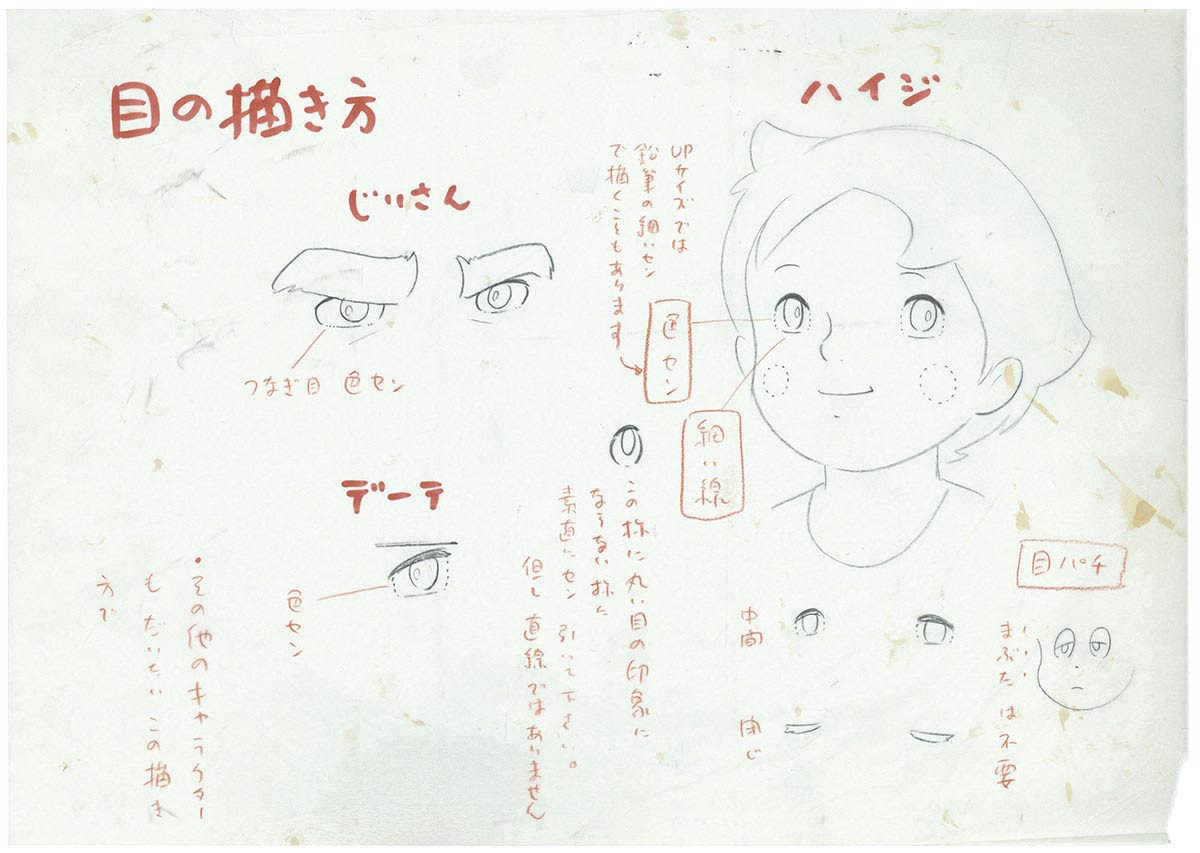 目の描き方
ハイジ
UPサイズでは
鉛筆の細いセン
で描くこともあります
色セン
細い線
じいさん
つなぎ目 色セン
デーテ
色セン
この様に丸い目の印象に
ならない様に
素直にセン引いて下さい。
但し直線ではありません
・その他のキャラクター
も だいたい この描き
方で
中間
閉じ
目パチ
まぶたは不要